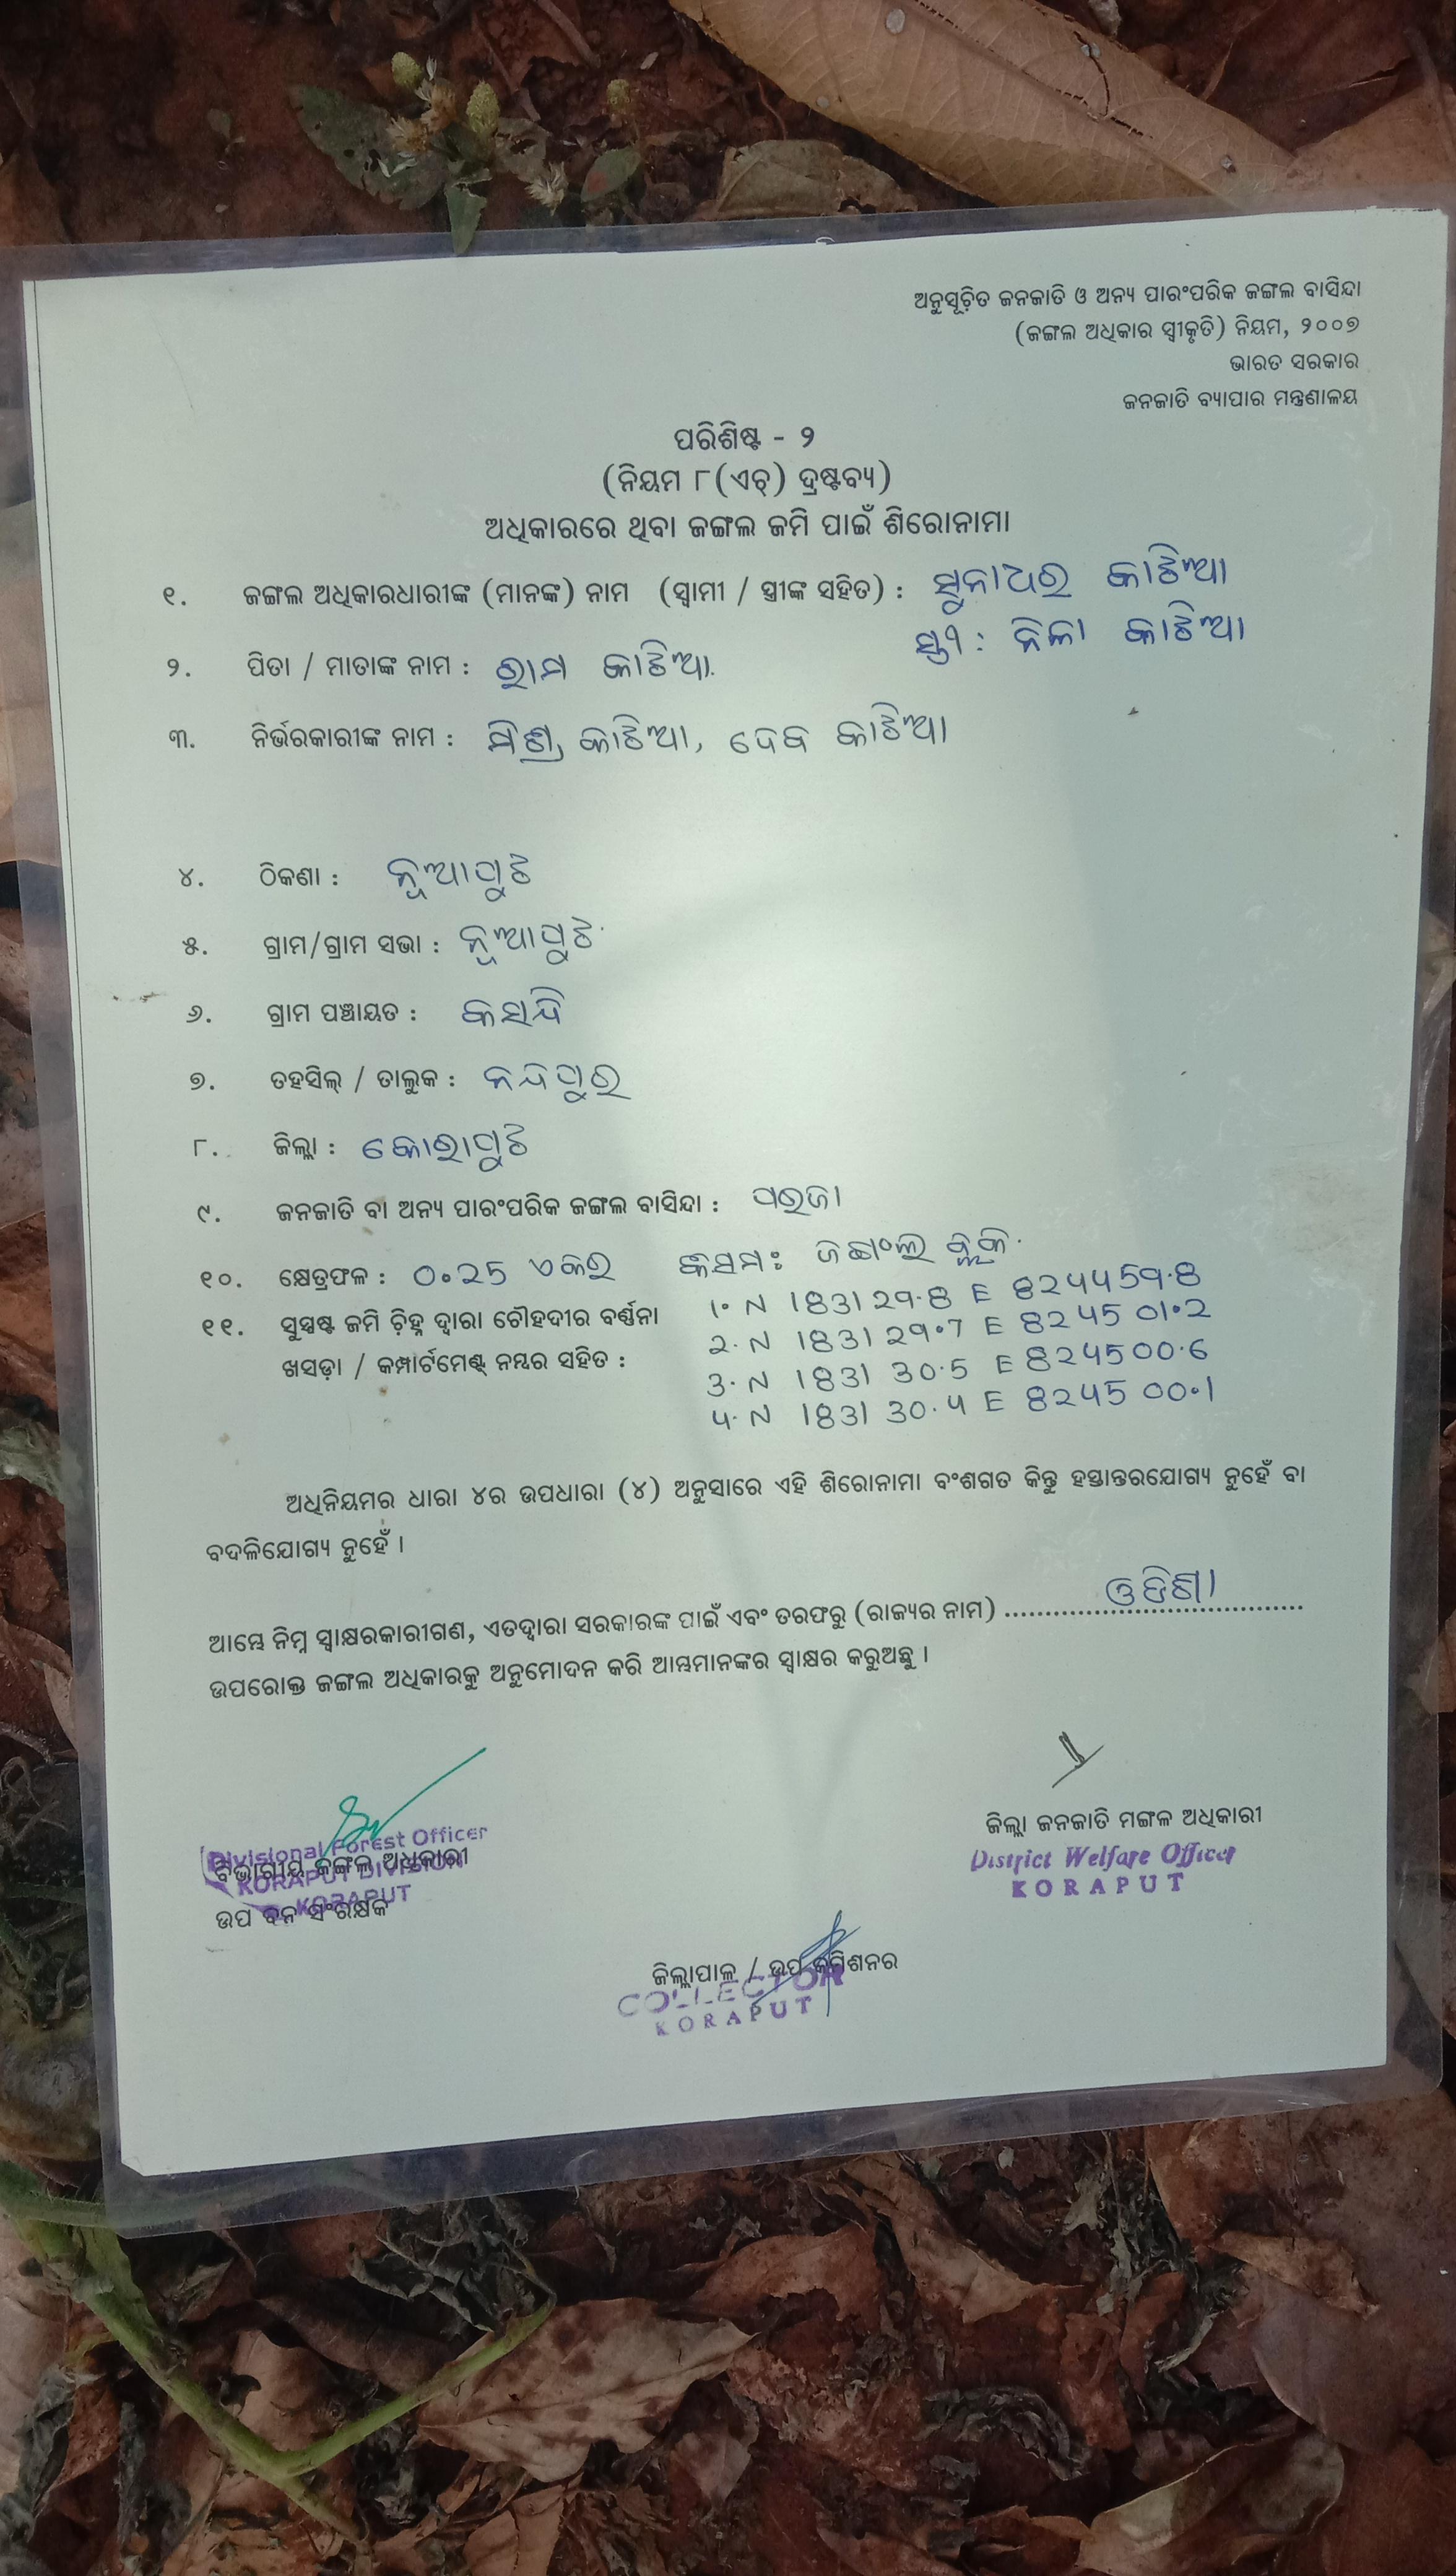 ଅନୁସୂଚିତ ଜନଜାତି ଓ ଅନ୍ୟ ପାରଂପରିକ ଜଙ୍ଗଲ ବାସିନ୍ଦା
(ଜଙ୍ଗଲ ଅଧିକାର ସ୍ୱୀକୃତି) ନିୟମ, ୨୦୦୭
ଭାରତ ସରକାର
ଜନଜାତି ବ୍ୟାପାର ମନ୍ତ୍ରଣାଳୟ
ପରିଶିଷ୍ଟ - ୨
(ନିୟମ ୮(ଏଚ୍) ଦ୍ରଷ୍ଟବ୍ୟ)
ଅଧିକାରରେ ଥିବା ଜଙ୍ଗଲ ଜମି ପାଇଁ ଶିରୋନାମା
୧. ଜଙ୍ଗଲ ଅଧିକାରଧାରୀଙ୍କ (ମାନଙ୍କ) ନାମ (ସ୍ୱାମୀ / ସ୍ତ୍ରୀଙ୍କ ସହିତ) : ସୁନାଧର କାଠିଆ
ସ୍ତ୍ରୀ : ନିଳା କାଠିଆ
୨. ପିତା / ମାତାଙ୍କ ନାମ : ରାମ କାଠିଆ.
୩. ନିର୍ଭରକାରୀଙ୍କ ନାମ : କାଠିଆ, ଦେବ କାଠିଆ
୪. ଠିକଣା : ନୂଆପୁଟ
୫. ଗ୍ରାମ/ଗ୍ରାମ ସଭା : ନୂଆପୁଟ
୬. ଗ୍ରାମ ପଞ୍ଚାୟତ : କସନ୍ଦି
୭. ତହସିଲ୍ / ତାଲୁକ : ନନ୍ଦପୁର
୮. ଜିଲ୍ଲା : କୋରାପୁଟ
୯. ଜନଜାତି ବା ଅନ୍ୟ ପାରଂପରିକ ଜଙ୍ଗଲ ବାସିନ୍ଦା : ପରଜା
୧୦. କ୍ଷେତ୍ରଫଳ : 0.25 ଏକର କିସମ:
୧୧. ସୁସ୍ପଷ୍ଟ ଜମି ଚିହ୍ନ ଦ୍ୱାରା ଚୌହଦୀର ବର୍ଣ୍ଣନା
ଖସଡ଼ା / କମ୍ପାର୍ଟମେଣ୍ଟ୍ ନମ୍ବର ସହିତ :
1. N 1831 29.8 E 824459.8
2. N 1831 29.7 E 8245 01.2
3. N 1831 30.5 E 824500.6
4. N 1831 30.4 E 8245 00.1
ଅଧିନିୟମର ଧାରା ୪ର ଉପଧାରା (୪) ଅନୁସାରେ ଏହି ଶିରୋନାମା ବଂଶଗତ କିନ୍ତୁ ହସ୍ତାନ୍ତରଯୋଗ୍ୟ ନୁହେଁ ବା
ବଦଳିଯୋଗ୍ୟ ନୁହେଁ ।
ଆମ୍ଭେ ନିମ୍ନ ସ୍ୱାକ୍ଷରକାରୀଗଣ, ଏତଦ୍ୱାରା ସରକାରଙ୍କ ପାଇଁ ଏବଂ ତରଫରୁ (ରାଜ୍ୟର ନାମ) ଓଡିଶା
ଉପରୋକ୍ତ ଜଙ୍ଗଲ ଅଧିକାରକୁ ଅନୁମୋଦନ କରି ଆମ୍ଭମାନଙ୍କର ସ୍ୱାକ୍ଷର କରୁଅଛୁ ।
Divisional Forest Officer
ବିଭାଗୀୟ ଜଙ୍ଗଲ ଅଧିକାରୀ
KORAPUT DIVISION
KORAPUT
ଉପ ବନ ସଂରକ୍ଷକ
ଜିଲ୍ଲା ଜନଜାତି ମଙ୍ଗଳ ଅଧିକାରୀ
District Welfare Officer
KORAPUT
ଜିଲ୍ଲାପାଳ / ଉପ କମିଶନର
COLLECTOR
KORAPUT